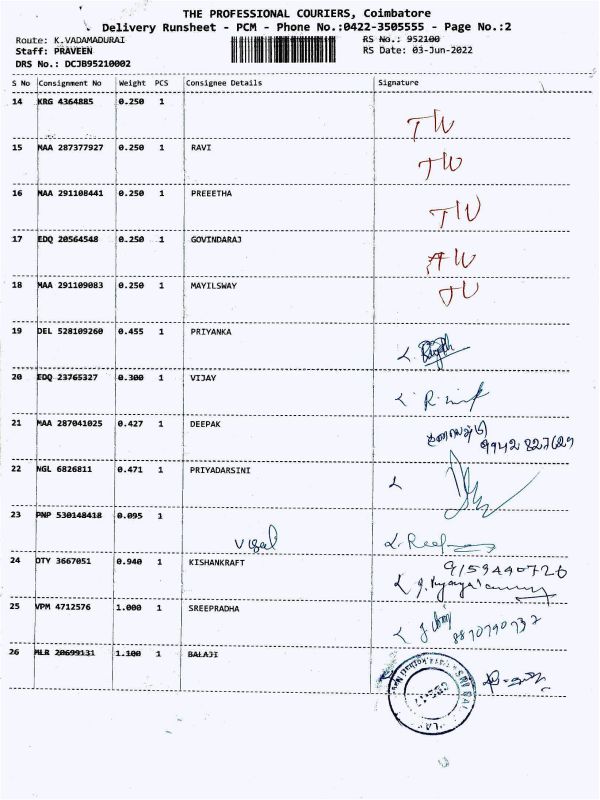 THE PROFESSIONAL COURIERS, Coimbatore
Delivery Runsheet - PCM - Phone No.:0422-3505555 - Page No.:2
Route: K.VADAMADURAI RS No.: 952100
Staff: PRAVEEN RS Date: 03-Jun-2022
DRS No.: DCJB95210002
S No Consignment No Weight PCS Consignee Details Signature
14 KRG 4364885 0.250 1
TW
15 MAA 287377927 0.250 1 RAVI
TW
16 MAA 291108441 0.250 1 PREEETHA
TW
17 EDQ 20564548 0.250 1 GOVINDARAJ
TW
18 MAA 291109083 0.250 1 MAYILSWAY
TW
19 DEL 528109260 0.455 1 PRIYANKA
20 EDQ 23765327 0.300 1 VIJAY
21 MAA 287041025 0.427 1 DEEPAK
9942827629
22 NGL 6826811 0.471 1 PRIYADARSINI
23 PNP 530148418 0.095 1
24 OTY 3667051 0.940 1 KISHANKRAFT
9159440726
25 VPM 4712576 1.000 1 SREEPRADHA
8870790732
26 MLR 20699131 1.100 1 BALAJI